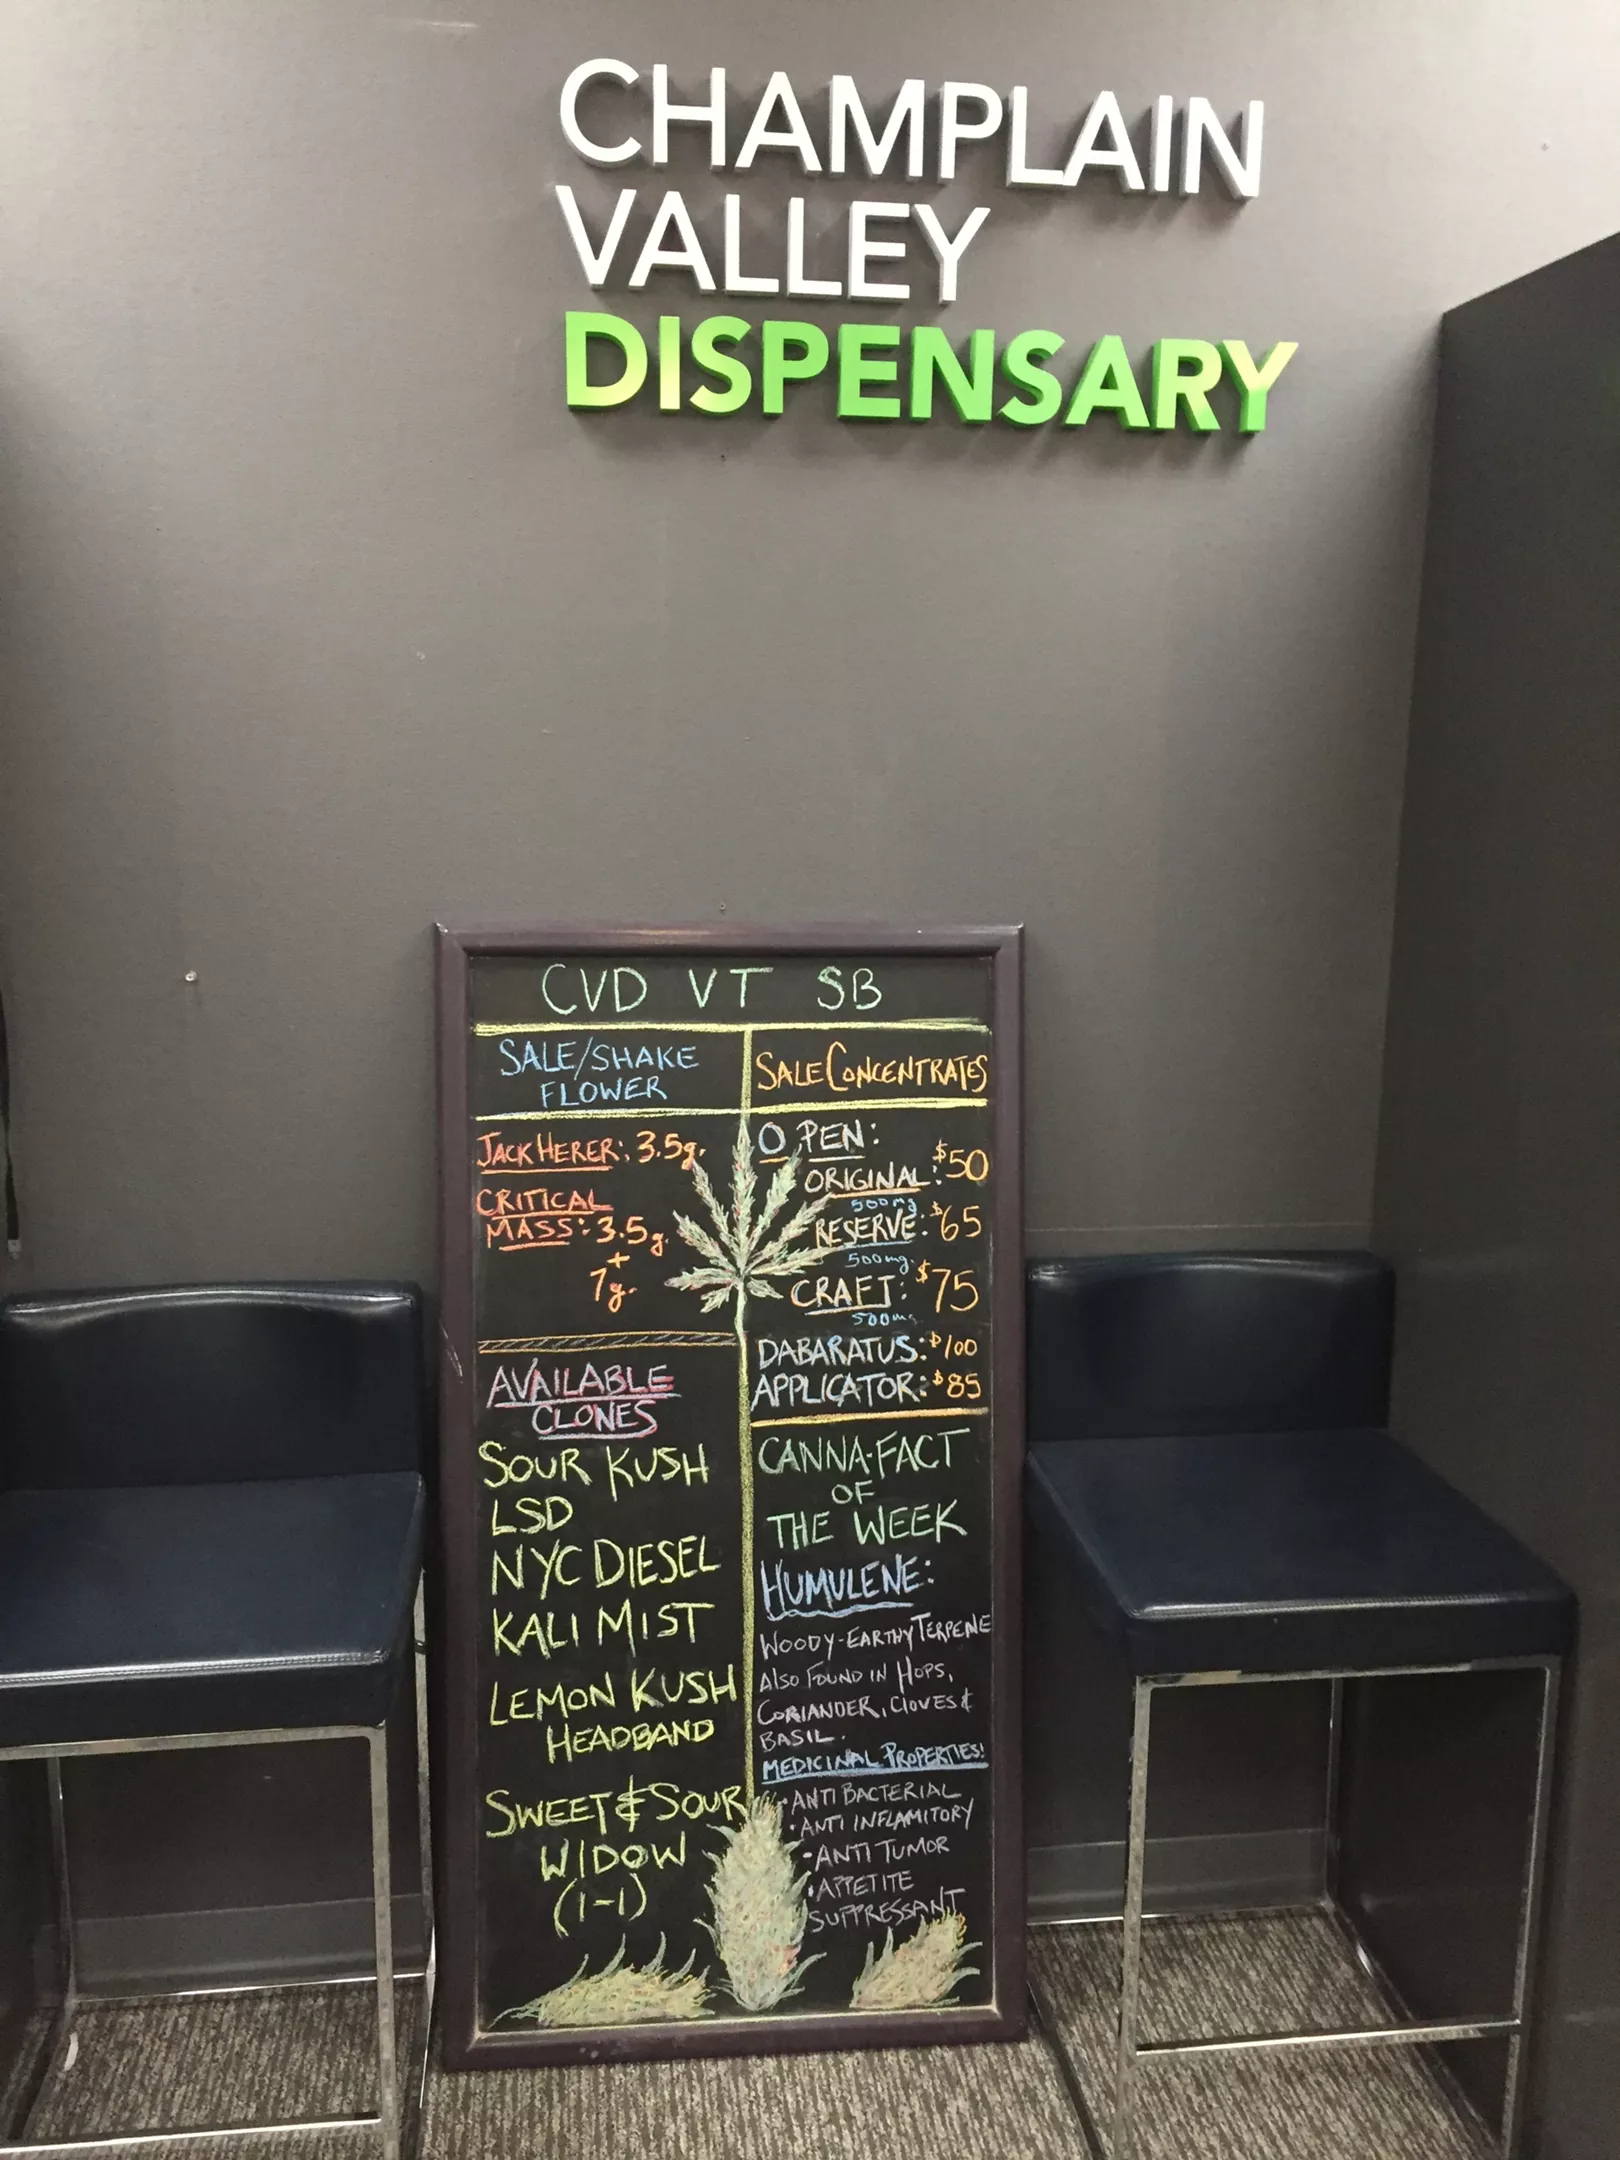 CHAMPLAIN
VALLEY
DISPENSARY
CVD VT SB
SALE/SHAKE
FLOWER
JACK HERER: 3.5g.
CRITICAL
MASS: 3.5g.
+
7g.
AVAILABLE
CLONES
SOUR KUSH
LSD
NYC DIESEL
KALI MIST
LEMON KUSH
HEADBAND
SWEET & SOUR
WIDOW
(1-1)
SALE CONCENTRATES
OPEN:
ORIGINAL: $50
500mg
RESERVE: $65
500mg.
CRAFT: $75
500mg.
DABARATUS: $100
APPLICATOR: $85
CANNA-FACT
OF
THE WEEK
HUMULENE:
WOODY-EARTHY TERPENE
ALSO FOUND IN HOPS,
CORIANDER, CLOVES &
BASIL.
MEDICINAL PROPERTIES!
• ANTI BACTERIAL
• ANTI INFLAMITORY
• ANTI TUMOR
• APPETITE
SUPPRESSANT